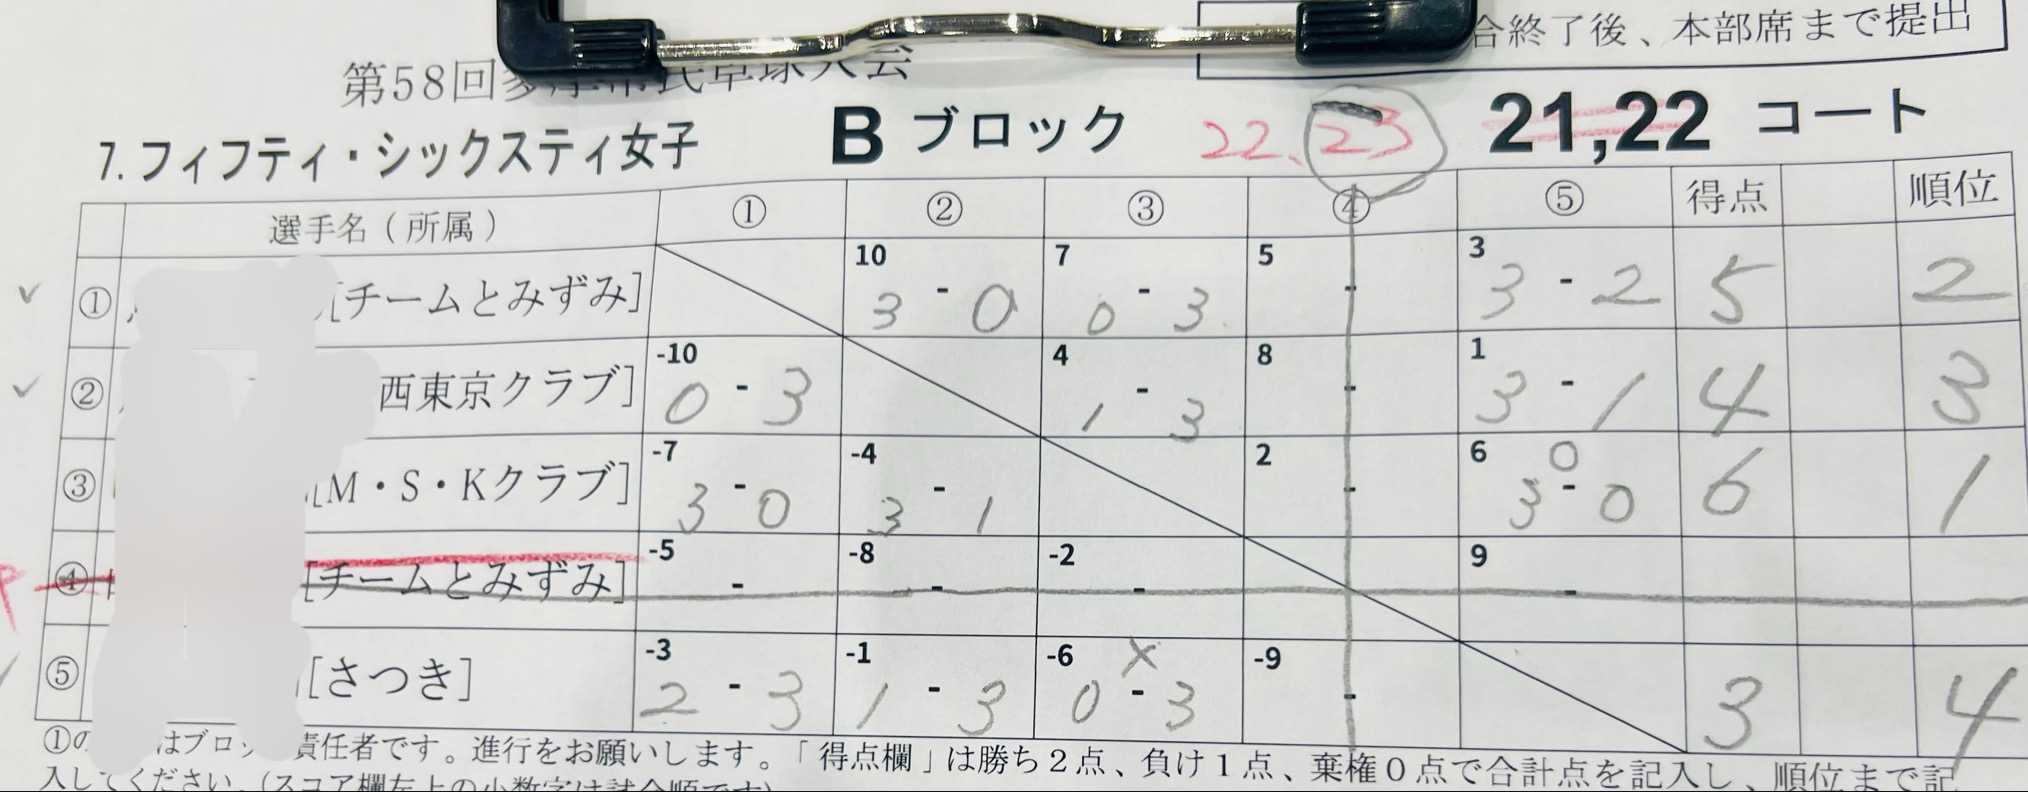 合終了後、本部席まで提出
第58回多摩市民卓球大会
7. フィフティ・シックスティ女子 B ブロック 22、23 21,22 コート
選手名(所属) ① ② ③ ④ ⑤ 得点 順位
① [チームとみずみ] 10 3 - 0 7 0 - 3 5 - 3 3 - 2 5 2
② 西東京クラブ] -10 0 - 3 4 1 - 3 8 - 1 3 - 1 4 3
③ [M・S・Kクラブ] -7 3 - 0 -4 3 - 1 2 - 6 0 3 - 0 6 1
④ [チームとみずみ] -5 - -8 - -2 - 9 -
⑤ [さつき] -3 2 - 3 -1 1 - 3 -6 × 0 - 3 -9 - 3 4
①の はブロ 責任者です。進行をお願いします。「得点欄」は勝ち2点、負け1点、棄権0点で合計点を記入し、順位まで記
入してください。(スコア欄左上の小数字は試合順です)